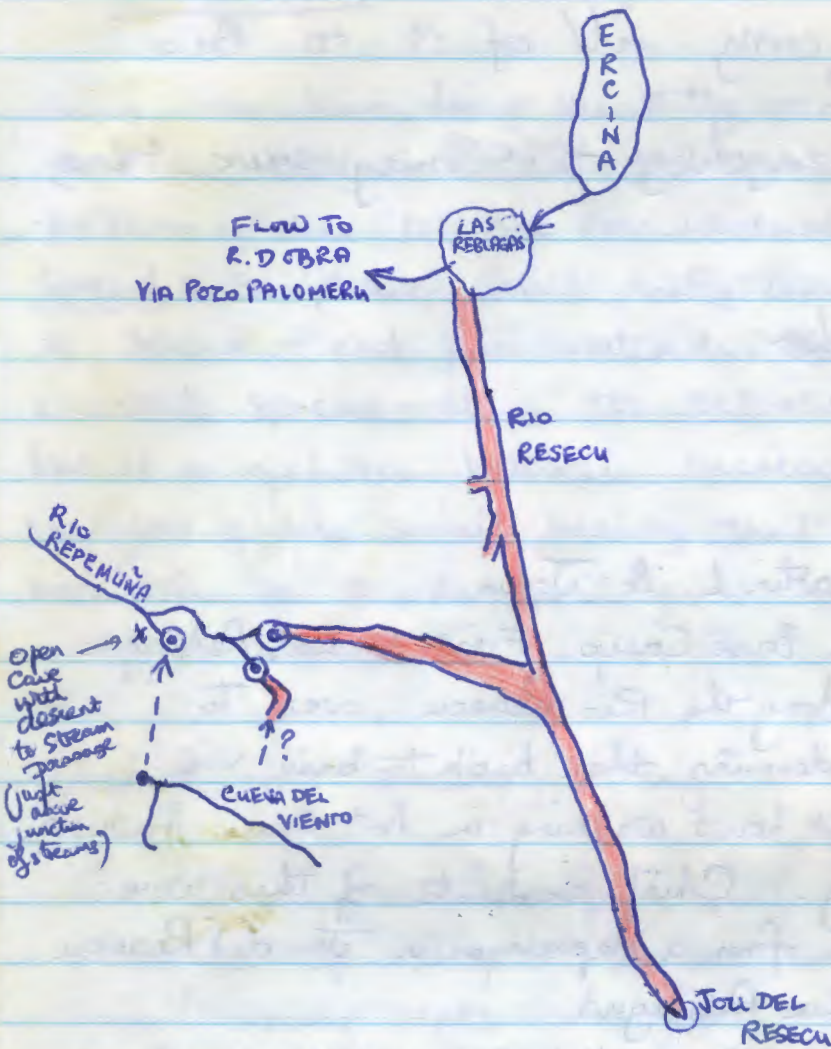 ERCINA
LAS
REBLAGAS
FLOW TO
R. DOBRA
VIA POZO PALOMERU
RIO
RESECU
RIO
REPEMUÑA
open
cave
with
descent
to stream
passage
(just
above
junction
of streams)
x
?
CUEVA DEL
VIENTO
JOU DEL
RESECU